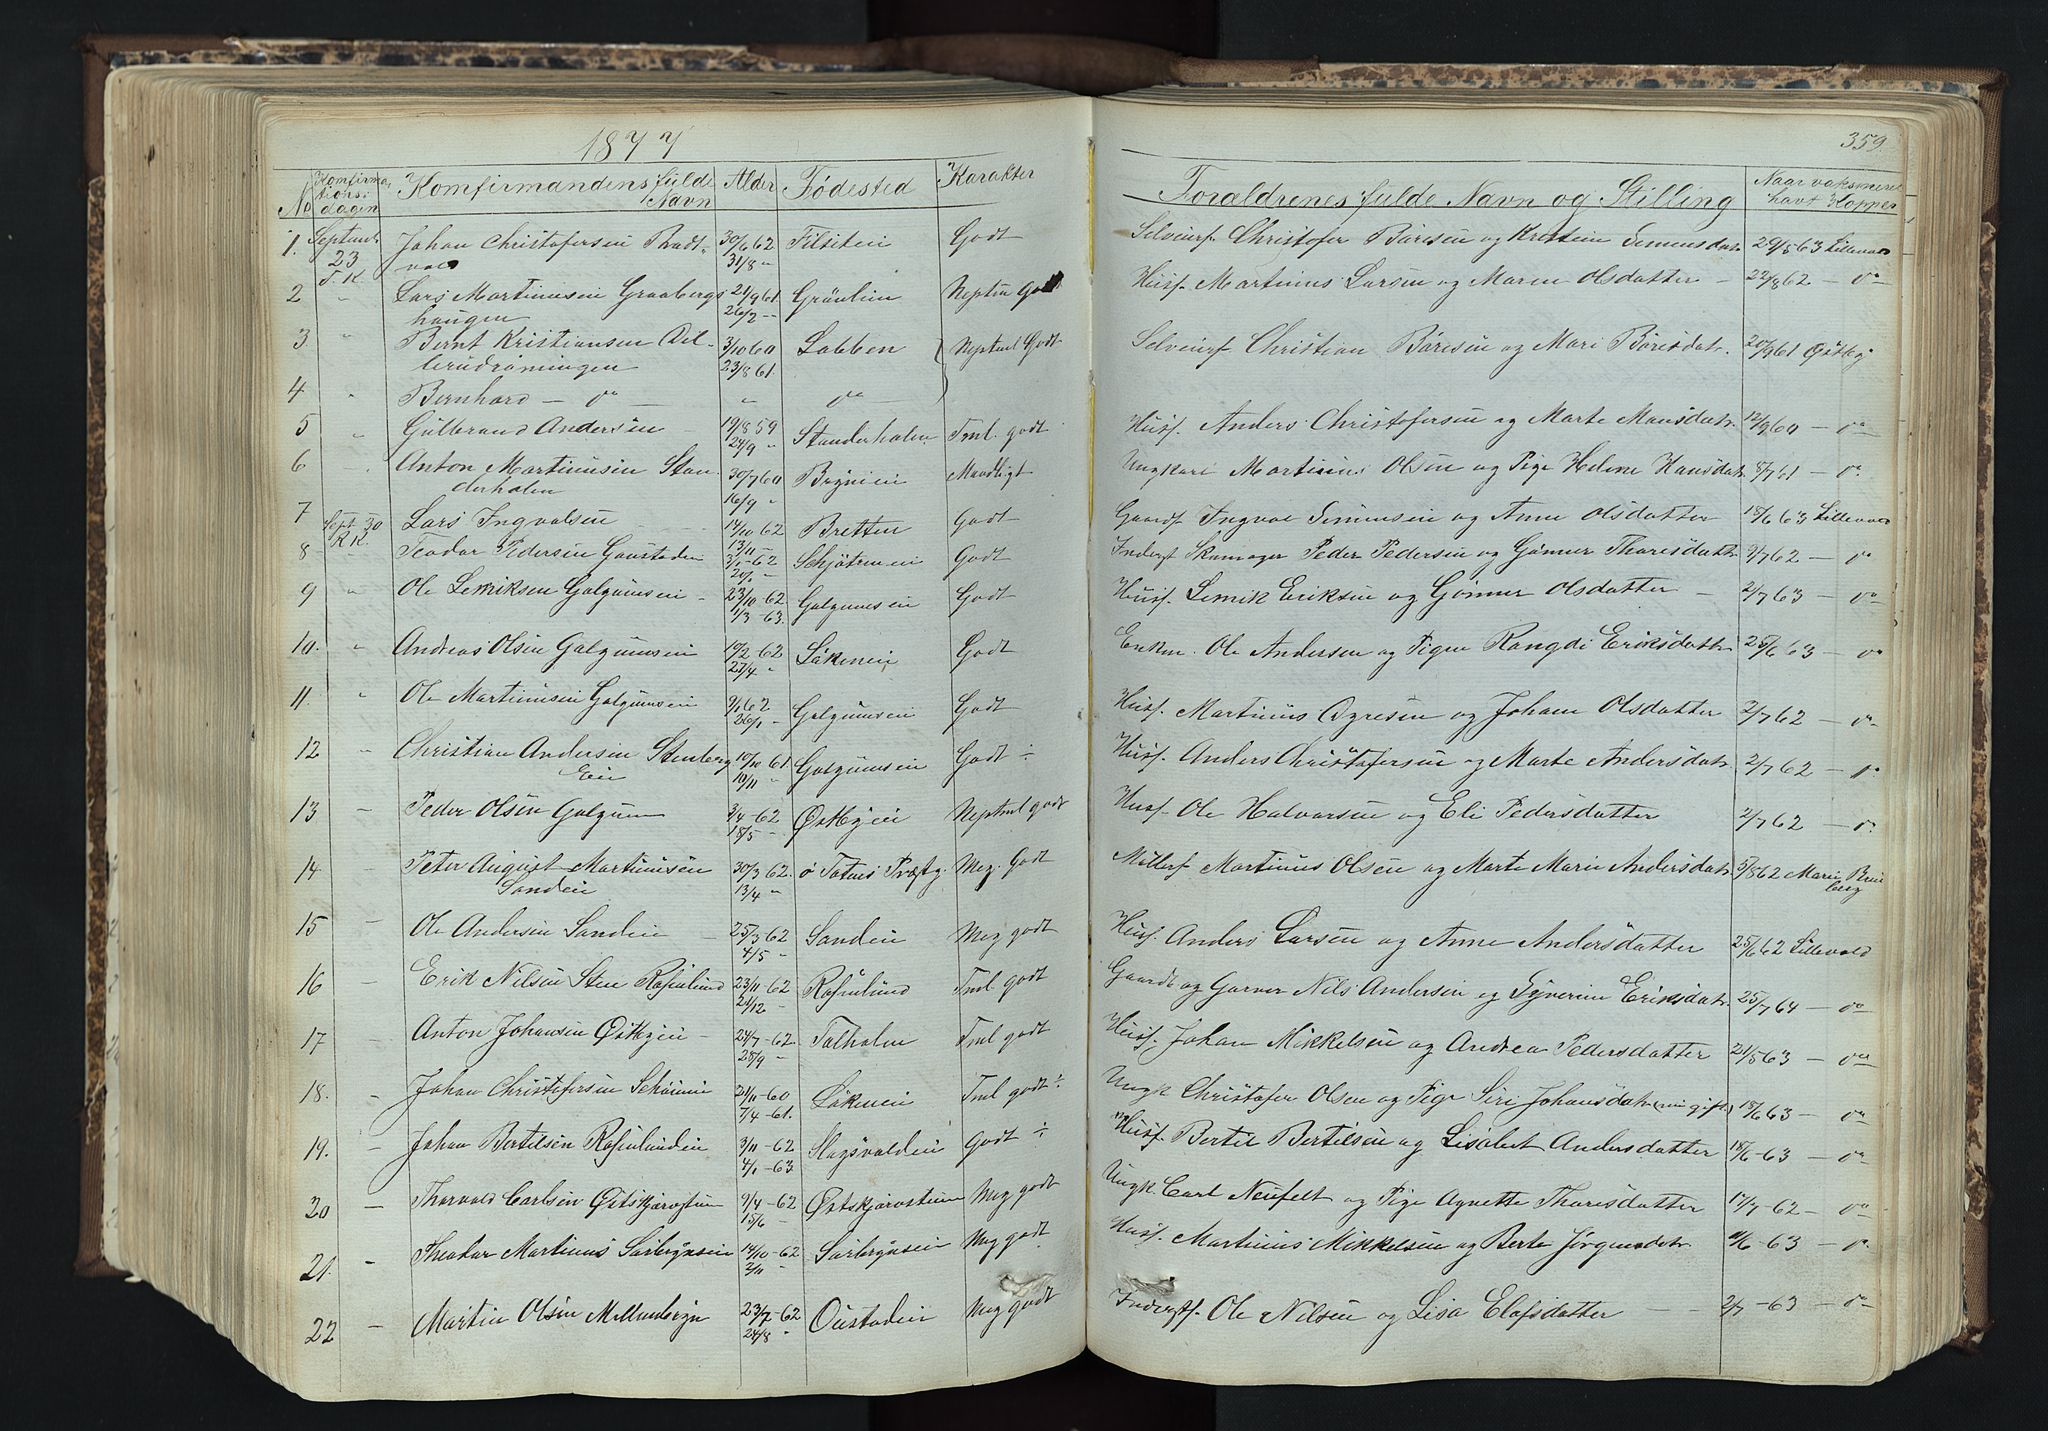 1877
359
No Komfirma-tions-dagen Komfirmandens fulde Navn Alder Fødested Karakter Forældrenes fulde Navn og Stilling Naar vaksineret havt Kopper
1. Septemb 23 T. K. Johan Christofersen 30/6 62 31/8 " Godt Selveierf. Christofer Båresen og Kristein Semensdatr 29/5 63 Lillevold
2 " Lars Martinusen Graabergshaugen 21/9 61 26/2 -- Grönlien Nepten Godt Husf. Martinius Larsen og Maren Olsdatter - 22/8 62 - do
3 " Bernt Kristiansen 3/10 60 23/8 61. Labben Neptml Godt Selveierf Christian Båresen og Mari Båresdatr. 20/9 61
4 " Bernhard - do - " do
5 " Gulbrand Andersen 19/8 59 24/9 " Standerholen Tml. godt Husf. Anders Christofersen og Marte Mansdatr 12/9 60 - do
6 Anton Martinusen Standerholen 30/7 60 16/9 " Brynien Maadligt Ungkarl Martinus Olsen og Pige Helene Hansdatr 8/7 61 - do
7 Sept 30 R.K. Lars Ingvalsen 14/10 62 13/11 -- Bretten Godt Gaardf Ingval Simensen og Anne Olsdatter 18/6 63 Lillevold
8 Teodor Pedersen Goustaden -62 Schjötrenen Godt Inderst Skomager Peder Pedersen og Gönner Tharesdatr 9/7 62 - do
9 " Ole Lemiksen Galgumsein 23/10 62 1/3 63. Galgumsein Godt Husf. Lemik Eriksen og Gönner Olsdatter - 2/7 63 - do
10. " Andreas Olsen Galgumsein 10/2-62 27/4 " Låkenein Godt Enkm. Ole Andersen og Pigen Rangdi Eriksdattr 25/6 63 - do
11. " Ole Martinusen Galgumsein 9/1 62 26/1 - Galgumsein Godt Husf. Martinius Ayresen og Johane Olsdatter 2/7 62 - do
12 " Christian Andersen Stenberg Eie 10/10 61. 10/11 " Galgumsein Godt ÷ Husf. Anders Christofersen og Marte Andersdatr 2/7 62 - do
13 - Peder Olsen Galgum 3/4-62 18/5 - Østbyeie Neptml godt Husf. Ole Halvarsen og Eli Pedersdatter 2/7 62 - do
14. - Peter August Martinusen Sandein 30/3 62. 13/4 " ö Totens Præstg. Meg. Godt Møllerf. Martinus Olsen og Marte Marie Andersdatr 5/8 62 Marie
15 - Ole Andersen Sandein 25/3 62 4/5 " Sandein Meg godt Husf. Anders Larsen og Anne Andersdatter 25/6 62 Lillevold
16 - Erik Nilsen Sten Rosenlund 23/11-62 24/12 - Rosenlund Tml godt Gaardb og Garver Nils Andersen og Syverine Eriksdatr 25/7 64 - do
17 - Anton Johansen Østbyeie - 24/7-62 28/9 - Talholen Tml godt Husf. Johan Mikkelsen og Andrea Pedersdatter 21/5 63 - do
18. - Johan Christofersen 24/11-60 7/4-61. Låkenein Tml godt ÷ Ungk Christofer Olsen og Pige Siri Johansdatr (nu gift) 18/6 63 - do
19. - Johan Bertelsen Rosenlundein 3/11-62 4/1-63 Slagsvoldein Godt ÷ Husf. Bertel Bertelsen og Lisabet Andersdatter 18/6-63 - do
20 - Tharvald Carlsen 9/4-62 15/6 - Østskjærostein Meg godt Ungk. Carl Neufelt og Pige Agnette Tharesdatter 17/7-62 - do
21. - Theodor Martinus Sørbergsein 14/10-62 2/11 - Sørbergsein Meg godt Husf. Martinius Mikkelsen og Berte Jørgensdatr /6-63 - do
22 - Martin Olsen 23/7-62 24/8 " Oustadein Meg godt Inderstf. Ole Nilsen og Lisa Elofsdatter 2/7-63 - do